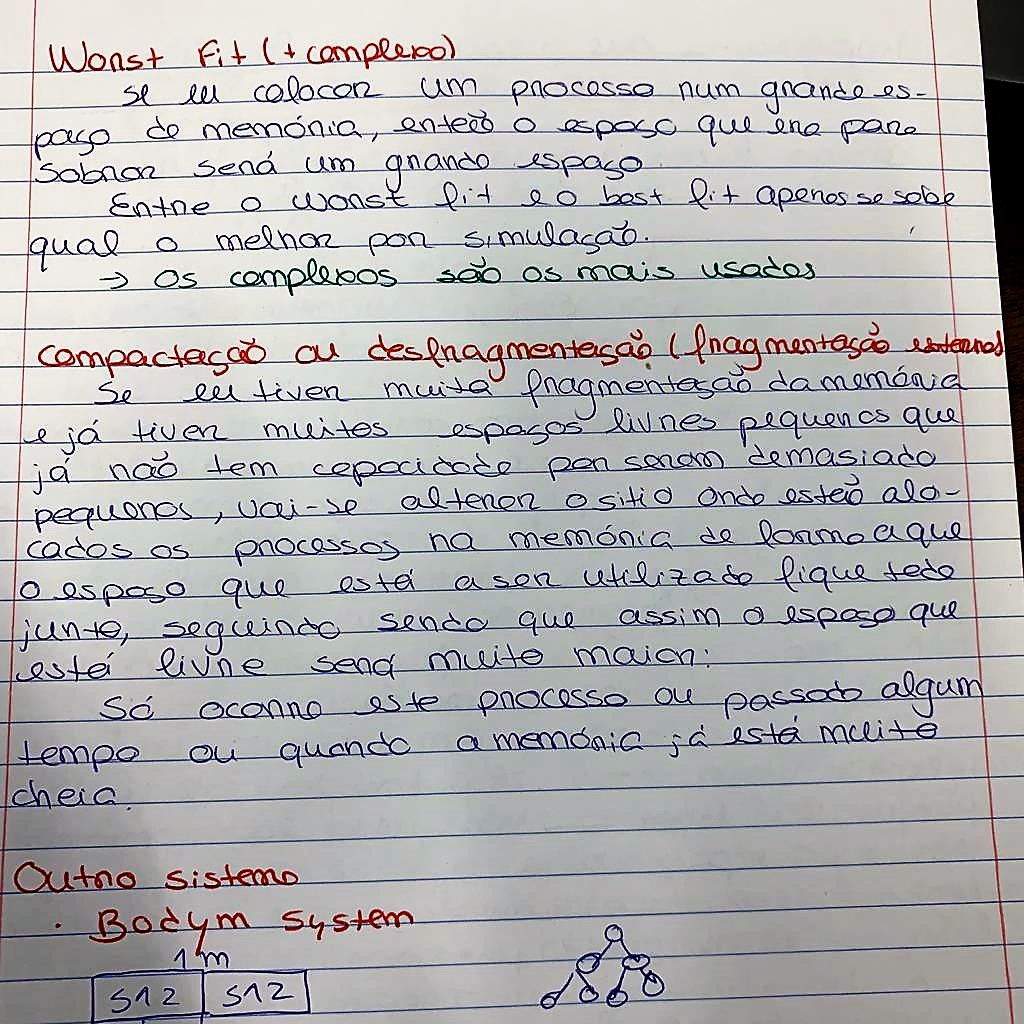 Worst Fit (+ complexo)
Se eu colocar um processo num grande es-
paço de memória, então o espaço que era para
sobrar será um grande espaço.
Entre o worst fit e o best fit apenas se sabe
qual o melhor por simulação.
→ Os complexos são os mais usados
Compactação ou desfragmentação (fragmentação externa)
Se eu tiver muita fragmentação da memória
e já tiver muitos espaços livres pequenos que
já não tem capacidade por serem demasiado
pequenos, vai-se alterar o sitio onde estão alo-
cados os processos na memória de forma a que
o espaço que está a ser utilizado fique todo
junto, seguindo sendo que assim o espaço que
está livre será muito maior.
Só ocorre este processo ou passado algum
tempo ou quando a memória já está muito
cheia.
Outro sistema
· Bodym System
1 m
512 512